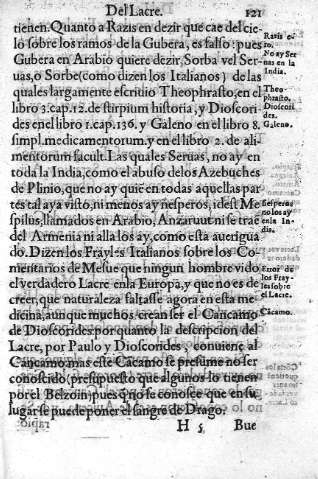 Del Lacre. 121
tienen. Quanto a Razis en dezir que cae del cie-
lo sobre los ramos de la Gubera, es falso: pues
Gubera en Arabio quiere dezir, Sorba vel Ser-
uas, o Sorbe (como dizen los Italianos) de las
quales largamente escriuio Theophrasto, en el
libro 3. cap. 12. de stirpium historia, y Dioscori
des en el libro 1. cap. 136. y Galeno en el libro 8.
simpl. medicamentorum. y en el libro 2. de ali-
mentorum facult. Las quales Seruas, no ay en
toda la India, como el abuso de los Azebuches
de Plinio, que no ay quie en todas aquellas par-
tes tal aya visto, ni menos ay nesperos, idest Me
spilus, llamados en Arabio, Anzaruut ni se trae
del Armenia ni alla los ay, como esta auerigua
do. Dizen los Frayles Italianos sobre los Co-
mentarios de Mesue que ningun hombre vido
el verdadero Lacre enla Europa, y que no es de
creer, que naturaleza faltasse agora en esta me-
dicina, aunque muchos crean ser el Cancamo
de Dioscorides por quanto la descripcion del
Lacre, por Paulo y Dioscorides, conuiene al
Cancamo, mas este Cácamo se presume no ser
conoscido (presupuesto que algunos lo tienen
por el Belzoin) pues q̃ no se conosce que en su
lugar se puede poner el sangre de Drago.
H 5 Bue
Razis e-
ro.
No ay Ser
uas en la
India.
Theo-
phrasto.
Dioscori
des.
Galeno.
Nesperos
no los ay
en la In
dia.
Error de
los Fray
les sobre
el Lacre.
Cácamo.